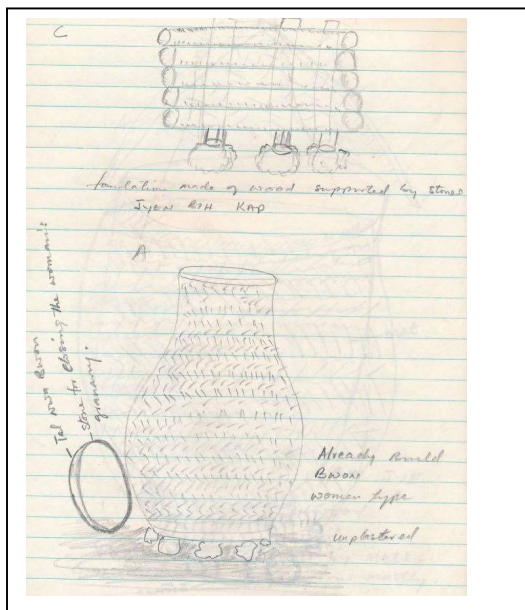 C
foundation made of wood supported by stones
JYEN KAP
A
Tal NWA Bwon
Stone for Closing the woman's
granary.
Already build
BWON
women type
unplastered